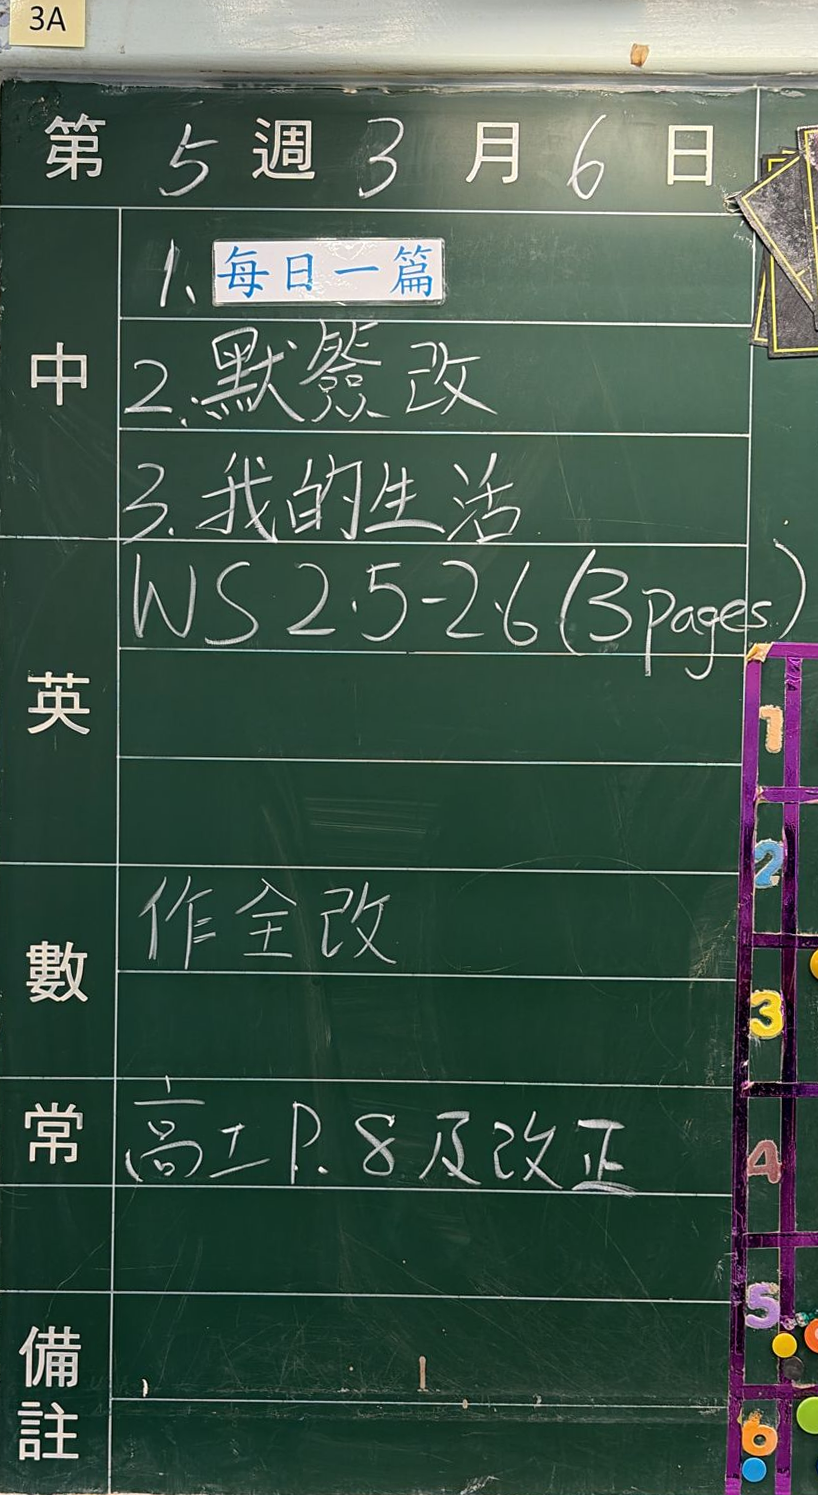 3A
第5週3月6日
中
1、每日一篇
2.默簽改
3.我的生活
英
WS 2.5-2.6 (3 pages)
數
作全改
常
高工P. 8及改正
備註
1
2
3
4
5
6